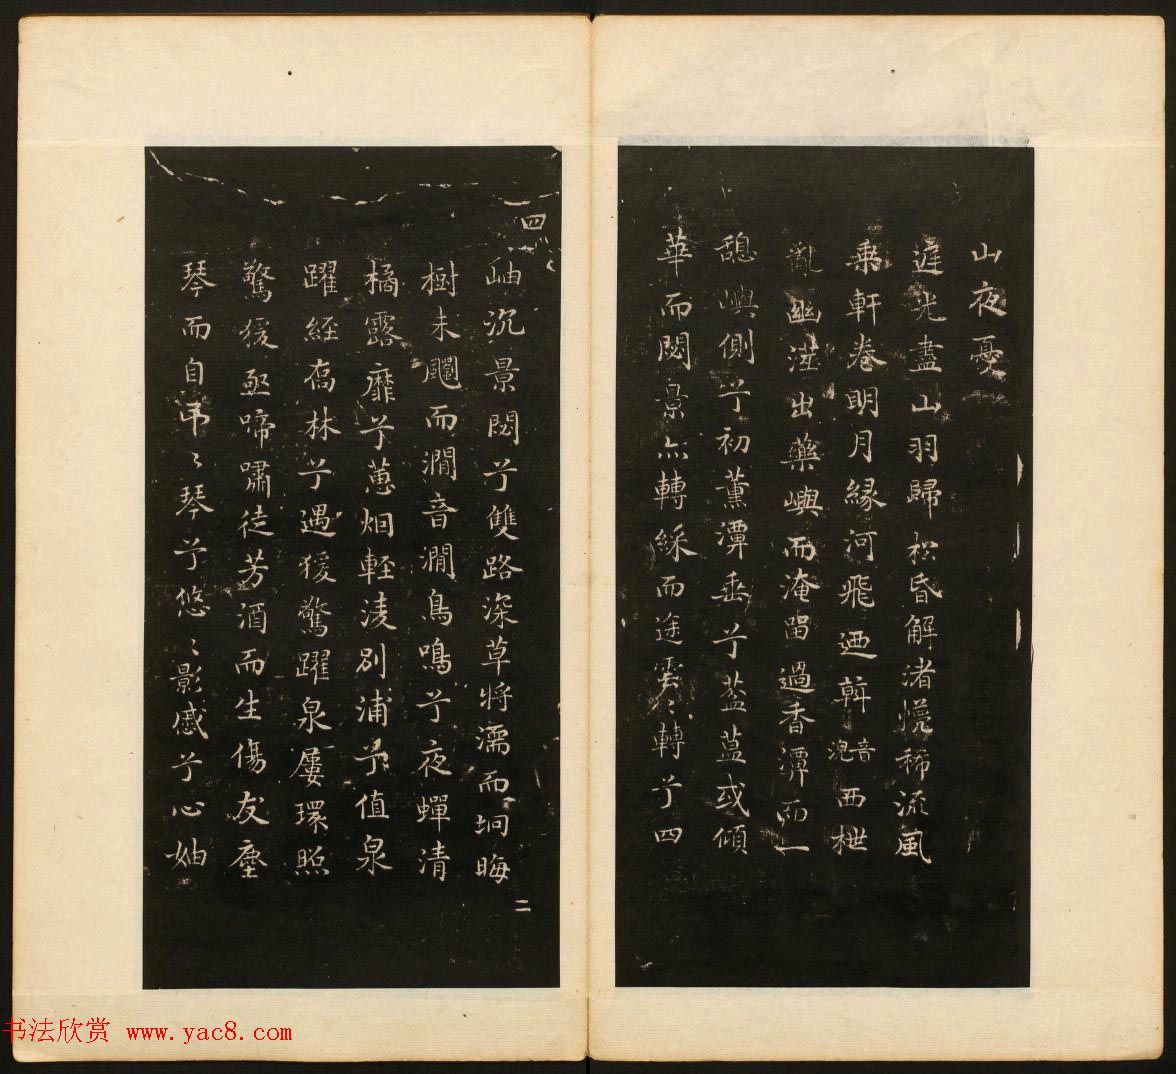 山夜憂
遅光盡山羽歸松昏解渚慌稀流風
乘軒卷明月緣河飛迺斡音浼西枻
亂幽澨出藥嶼而淹留過香潭而一
憩嶼側兮初薰潭垂兮葢蒀或傾
華而閟景亦轉綵而途雲〻轉兮四
四
岫沉景閟兮雙路深草將濡而坰晦
樹未飀而澗音澗鳥鳴兮夜蟬清
橘露靡兮蕙烟輕淩別浦兮值泉
躍經喬林兮遇猨驚躍泉屢環照
驚猨亟啼嘯徒芳酒而生傷友塵
琴而自弔〻琴兮悠〻影慼兮心妯
二
书法欣赏 www.yac8.com